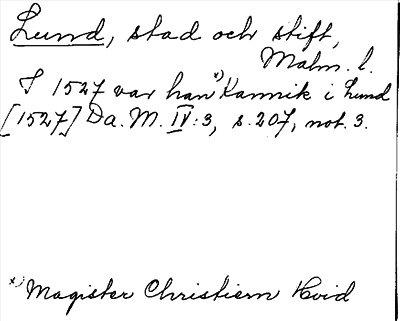 Lund, stad och stift,
Malm. l.
I 1527 var han x) Kannik i Lund
[1527] Da. M. IV:3, s. 207, not. 3.
x) Magister Christiern Hvid